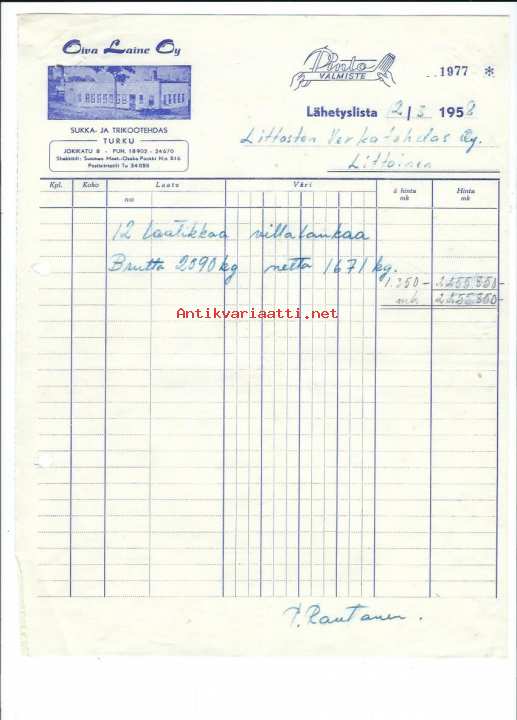 Oiva Laine Oy
Pinta
VALMISTE
..1977 *
SUKKA- JA TRIKOOTEHDAS
TURKU
JOKIKATU 8 - PUH. 18902 - 24670
Shekkitili: Suomen Maat.-Osake-Pankki N:o 816
Postisiirtotili Tu 34058
Lähetyslista 2/3 1958
Littoisten Verkatehdas Oy.
Littoinen
Kpl. Koko Laatu Väri à hinta mk Hinta mk
no
12 laatikkaa villalankaa
Brutto 2090 kg netto 1671 kg.
1.350 -
mk
Antikvariaatti.net
P. Rautanen.